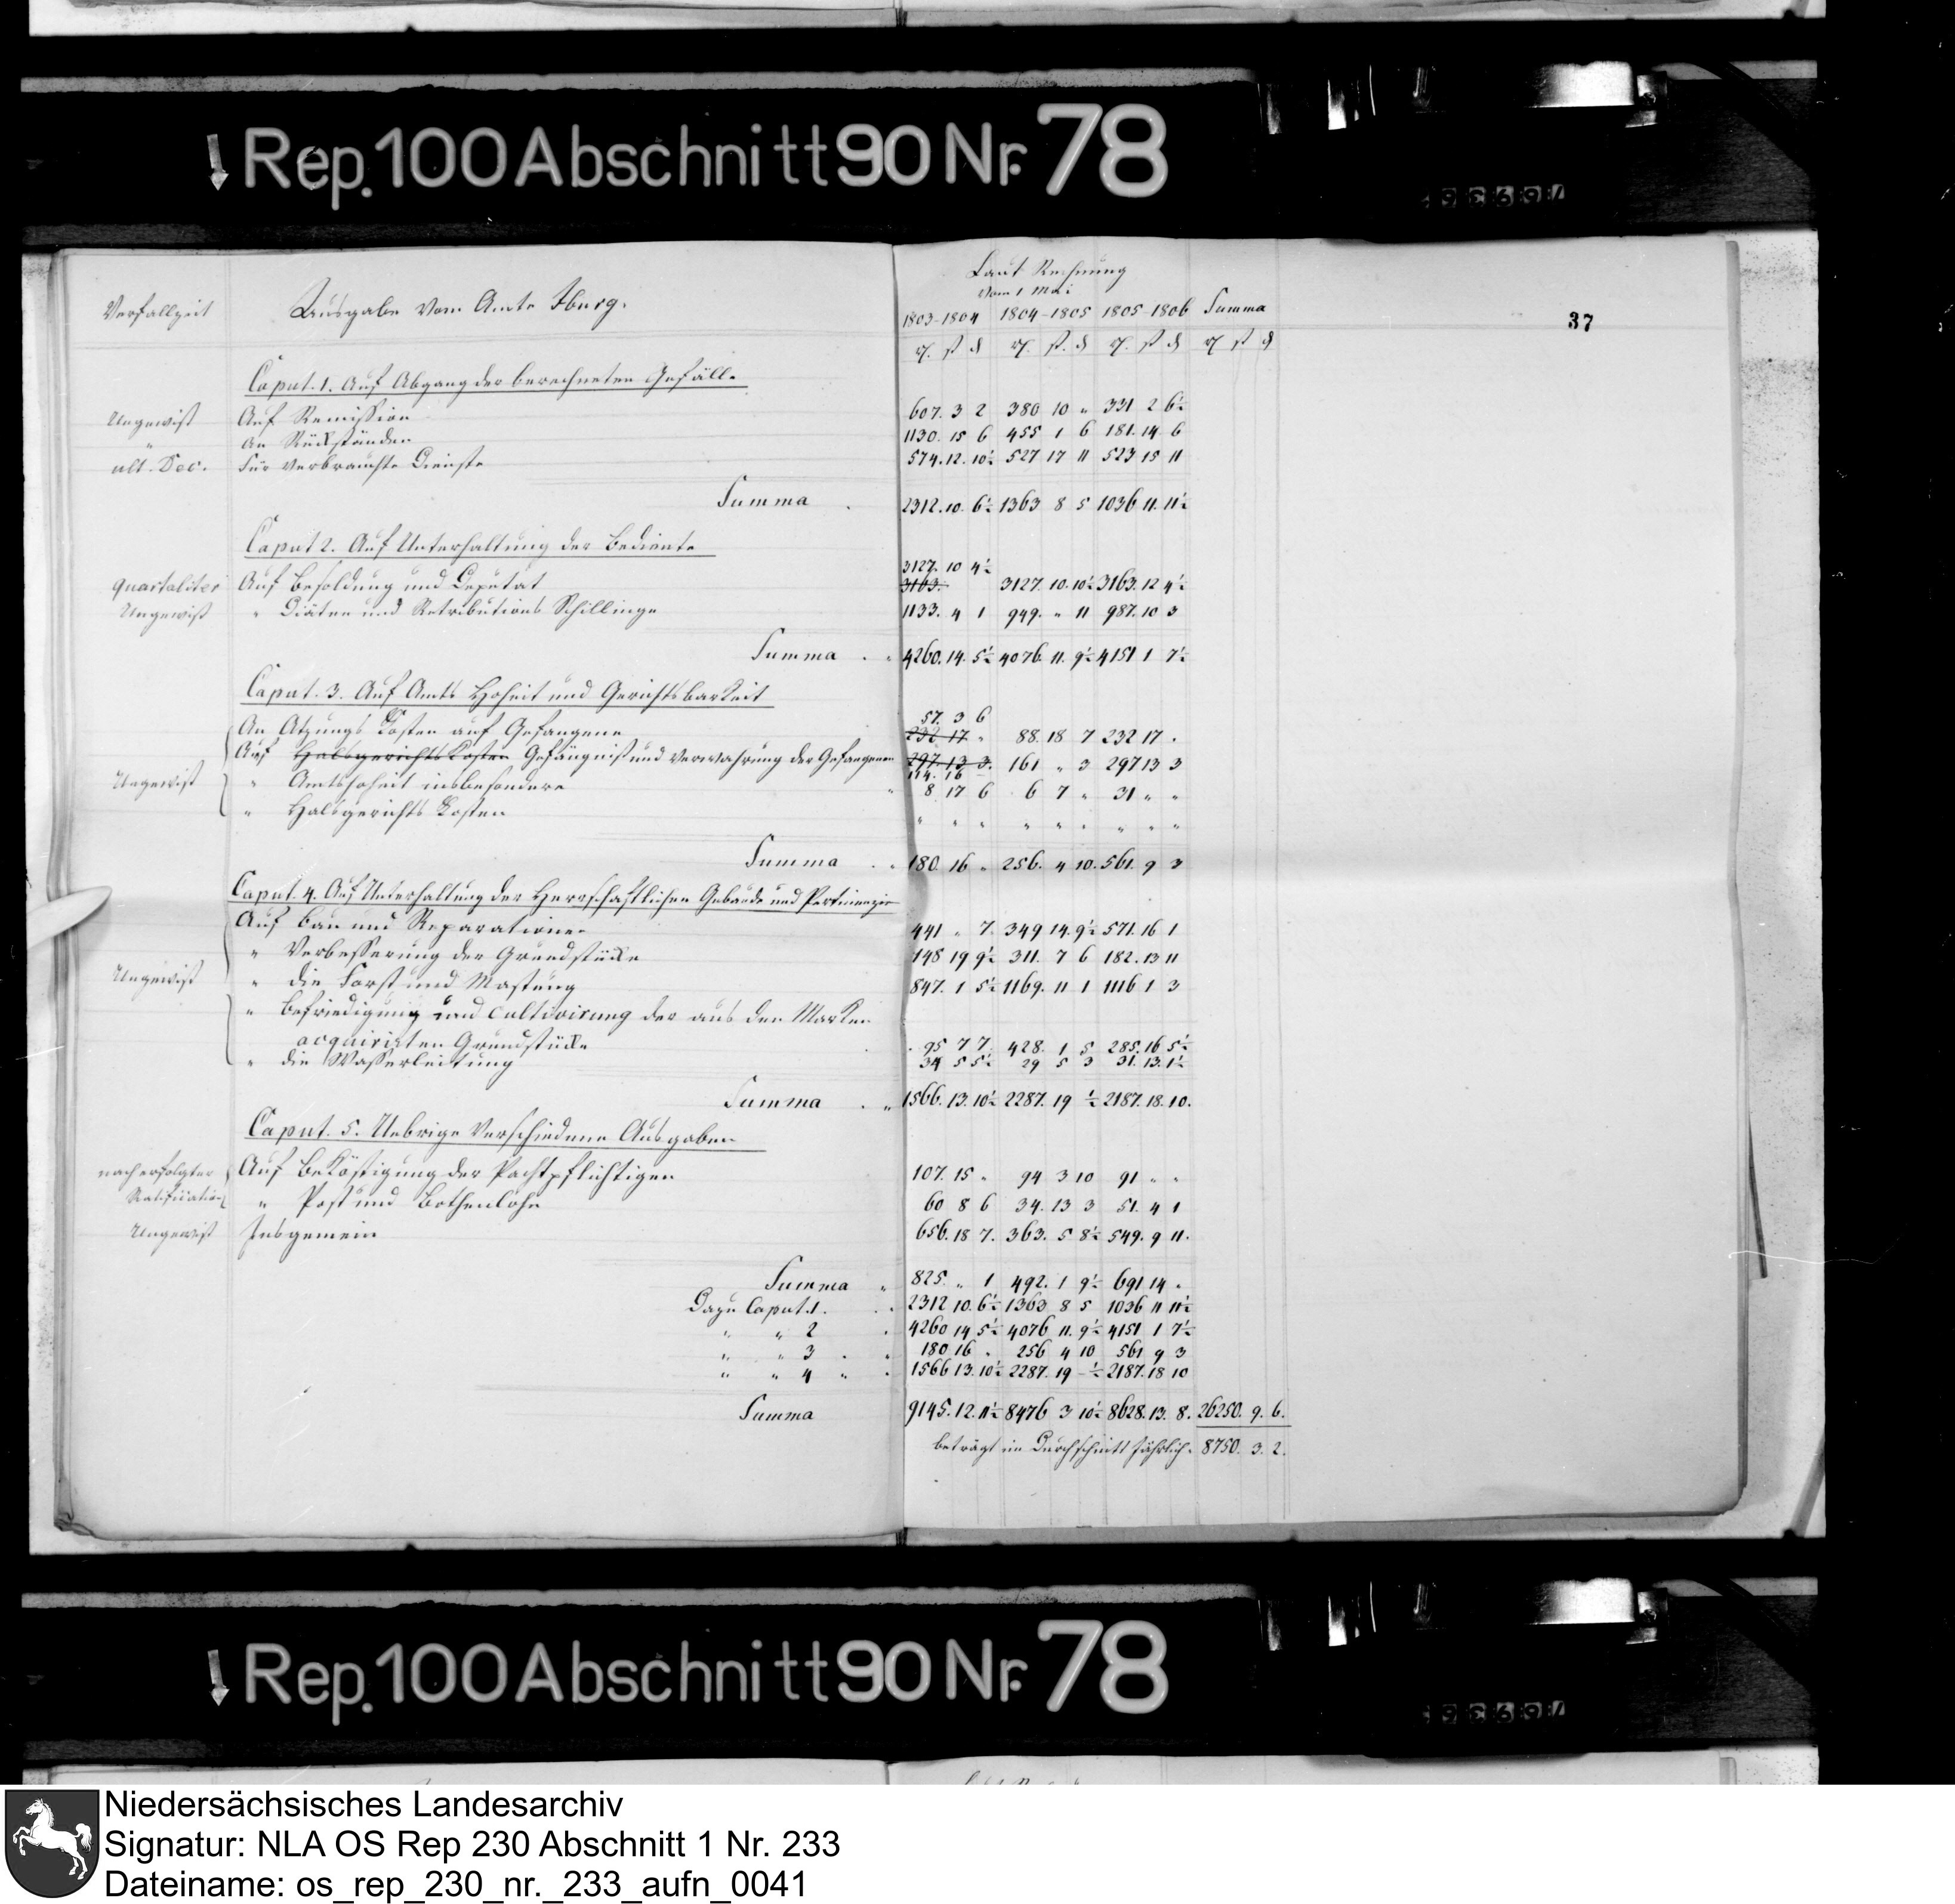 Rep. 100 Abschnitt 90 Nr. 78
Laut Rechnung
vom 1 Mai
Verfallzeit Ausgabe vom Amte Iburg. 1803-1804 1804-1805 1805-1806 Summa
37
Caput. 1. Auf Abgang der berechneten Gefälle
Ungewiß Auf Remission 607. 3 2 380 10 " 331 2 6½
" An Rückständen 1130. 15 6 455 1 6 181. 14 6
ult. Dec. Für verbrauchte Dienste 574. 12. 10½ 527 17 11 523 15 11
Summa 2312. 10. 6½ 1363 8 5 1036 11. 11½
Caput 2. Auf Unterhaltung der Bediente
3127. 10 4½
quartaliter Auf Besoldung und Deputat 3163. 3127. 10. 10½ 3163. 12 4½
Ungewiß " Diäten und Retributions Schillinge 1133. 4 1 949. " 11 987. 10 3
Summa 4260. 14. 5½ 4076. 11. 9½ 4151 1 7½
Caput. 3. Auf Amts Hoheit und Gerichtsbarkeit
57. 3 6
An Atzungs Kosten auf Gefangene 232 17 " 88. 18 7 232 17 .
Auf Halsgerichts Kosten Gefängniß und Verwahrung der Gefangenen 297. 13 3. 161 " 3 297 13 3
114. 16
Ungewiß " Amtshoheit insbesondere 8 17 6 6 7 " 31 " "
" Halsgerichts Kosten " " " " " " " " "
Summa 180. 16 " 256. 4 10. 561. 9 3
Caput. 4. Auf Unterhaltung der Herrschaftlichen Gebäude und Pertinenzien
Auf Bau und Reparationen 441 " 7. 349 14. 9½ 571. 16 1
" Verbesserung der Grundstücke 148 19 9½ 311. 7 6 182. 13 11
Ungewiß " die Forst und Mastung 847. 1 5½ 1169. 11 1 1116 1 3
" Befriedigung und Cultivirung der aus den Marken
acquirirten Grundstücke 95 7 7. 428. 1 5 285. 16 5½
" die Wasserleitung 34 5 5½ 29 5 3 31. 13. 1½
Summa 1566. 13. 10½ 2287. 19 ½ 2187. 18. 10.
Caput. 5. Uebrige verschiedene Ausgaben
nach erfolgter Auf Beköstigung der Pachtpflichtigen 107. 15 " 94 3 10 91 " "
Ratification " Post und Bothenlohn 60 8 6 34. 13 3 51. 4 1
Ungewiß Insgemein 656. 18 7. 363. 5 8½ 549. 9 11.
Summa " 825. " 1 492. 1 9½ 691 14 .
Dazu Caput. 1. 2312 10. 6½ 1363 8 5 1036 11 11½
" " 2 4260 14 5½ 4076 11. 9½ 4151 1 7½
" " 3 180 16 . 256 4 10 561 9 3
" " 4 1566 13. 10½ 2287. 19 - ½ 2187. 18 10
Summa 9145. 12. 11½ 8476 3 10½ 8628. 13. 8. 26250. 9. 6.
beträgt im Durchschnitt jährlich 8750. 3. 2.
Rep. 100 Abschnitt 90 Nr. 78
Niedersächsisches Landesarchiv
Signatur: NLA OS Rep 230 Abschnitt 1 Nr. 233
Dateiname: os_rep_230_nr._233_aufn_0041